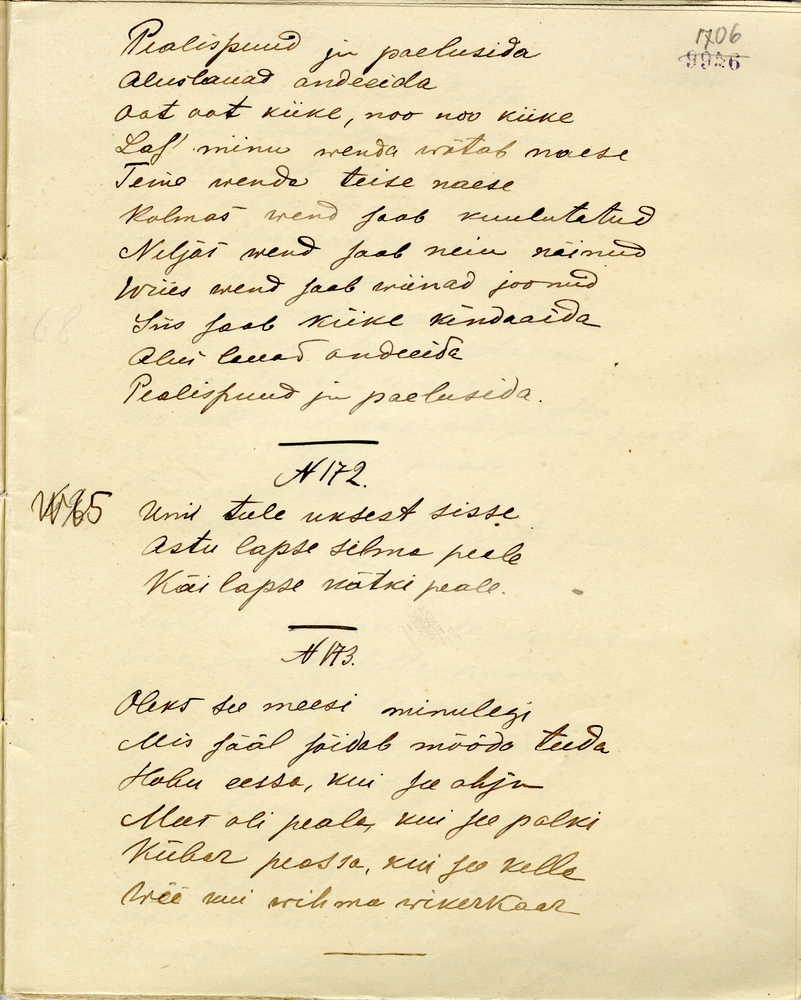 1706
9926
Pealispuud ja paelusida
Aluslauad andeeida
Oot oot kiike, noo noo kiike
Las' minu wenda wõtab naese
Teine wenda teise naese
Kolmas wend saab kuulutatud
Neljäs wend saab neiu näinud
Wiies wend saab wiinad joonud
Siis saab kiike kindaaida
Alus lauad andeeida
Pealispuud ja paelusida.
N 172.
Uni tule uksest sisse
Astu lapse silma peale
Käi lapse kätki peale.
N 173.
Oleks see meesi minulegi
Mis sääl sõidab mööda teeda
Hobu eessa, kui see ahju
Mees oli peala, kui see palki
Kübar peassa, kui see kella
Wöö kui wihma wikerkaar